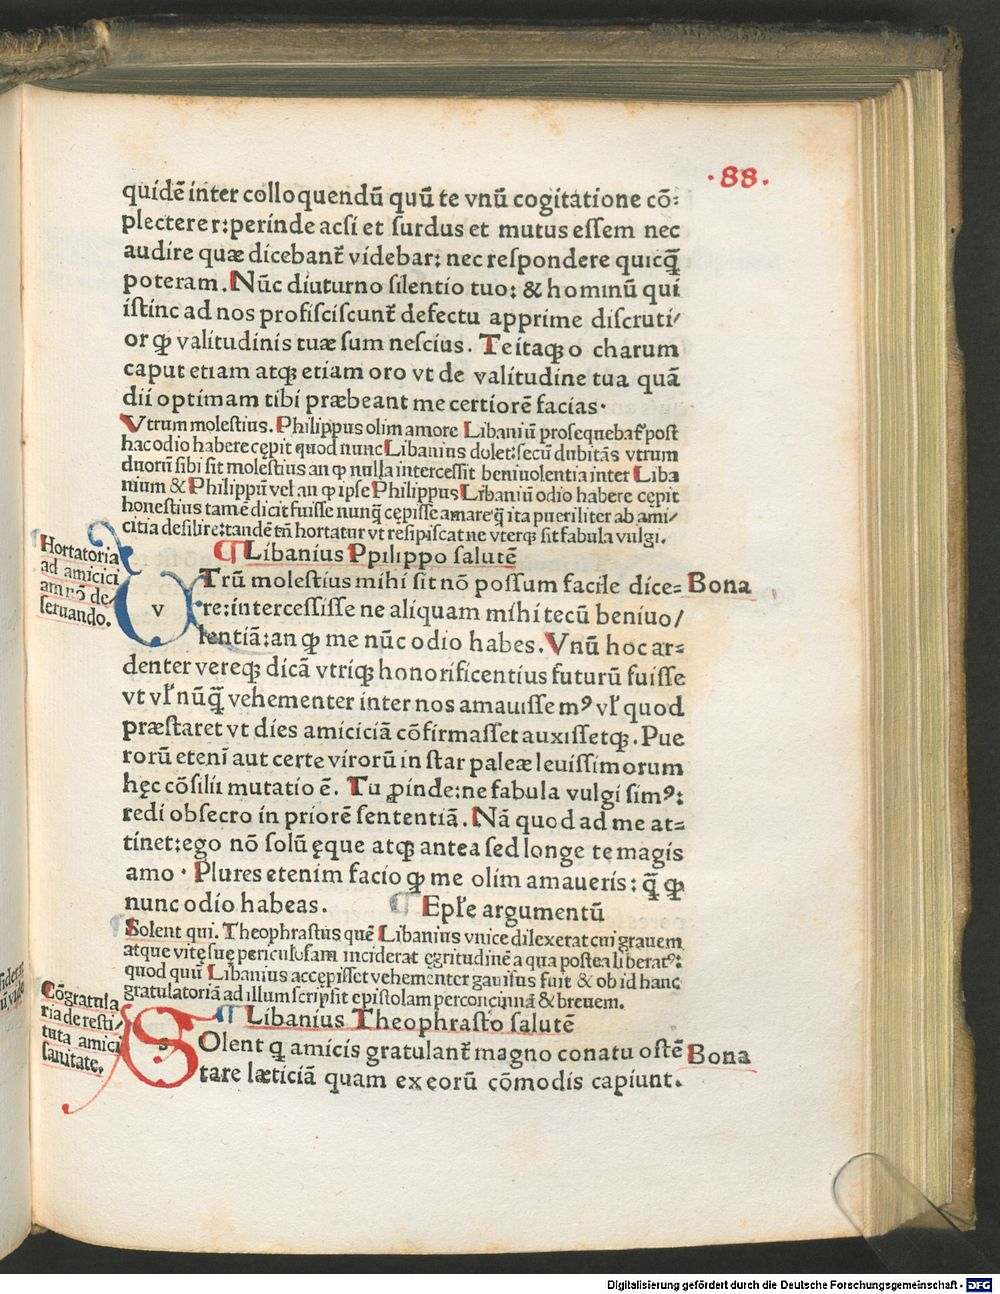 ·88.
quidē inter colloquendū quū te vnū cogitatione cō⸗
plecterer:perinde acsi et surdus et mutus essem nec
audire quæ dicebant᷑ videbar: nec respondere quicq̄
poteram. Nūc diuturno silentio tuo: & hominū qui
istinc ad nos profisciscunt᷑ defectu apprime discruti/
or ꝙ valitudinis tuæ sum nescius. Te itaqꝫ o charum
caput etiam atqꝫ etiam oro vt de valitudine tua quā
dii optimam tibi præbeant me certiorē facias·
Vtrum molestius. Philippus olim amore Libaniū prosequebat᷑ post
hac odio habere cępit quod nunc Libanius dolet:secū dubitās vtrum
duorū sibi sit molestius an ꝙ nulla intercessit beniuolentia inter Liba
nium & Philippū vel an ꝙ ipse Philippus Libaniū odio habere cępit
honestius tamē dicit fuisse nunq̄ cępisse amare q̄ ita pueriliter ab ami/
citia desilire:tandē tn̄ hortatur vt resipiscat ne vterqꝫ sit fabula vulgi.
¶ Libanius Ppilippo salutē
Hortatoria
ad amicici
am nō de
seruando.
v
Trū molestius mihi sit nō possum facile dice⸗ Bona
re:intercessisse ne aliquam mihi tecū beniuo/
lentiā:an ꝙ me nūc odio habes. Vnū hoc ar⸗
denter vereqꝫ dicā vtriqꝫ honorificentius futurū fuisse
vt vl̓ nūq̄ vehementer inter nos amauisse mꝰ vl̓ quod
præstaret vt dies amiciciā cōfirmasset auxissetqꝫ. Pue
rorū eteni̅ aut certe virorū in star paleæ leuissimorum
hęc cōsilii mutatio ē. Tu ꝓinde:ne fabula vulgi simꝰ:
redi obsecro in priorē sententiā. Nā quod ad me at⸗
tinet:ego nō solū ęque atqꝫ antea sed longe te magis
amo · Plures etenim facio ꝙ me olim amaueris: q̄ ꝙ
nunc odio habeas. ¶ Epl̓e argumentū
Solent qui. Theophrastus quē Libanius vnice dilexerat cui grauem
atque vitę suę periculosam inciderat ęgritudinē a qua postea liberatꝰ:
quod quū Libanius accepisset vehementer gauisus fuit & ob id hanc
gratulatoriā ad illum scripsit epistolam perconcinnā & breuem.
¶ Libanius Theophrasto salutē
Cōgratula
ria de resti/
tuta amici
sanitate.
s
Olent q amicis gratulant᷑ magno conatu ostē Bona
tare læticiā quam ex eorū cōmodis capiunt.
Digitalisierung gefördert durch die Deutsche Forschungsgemeinschaft - DFG